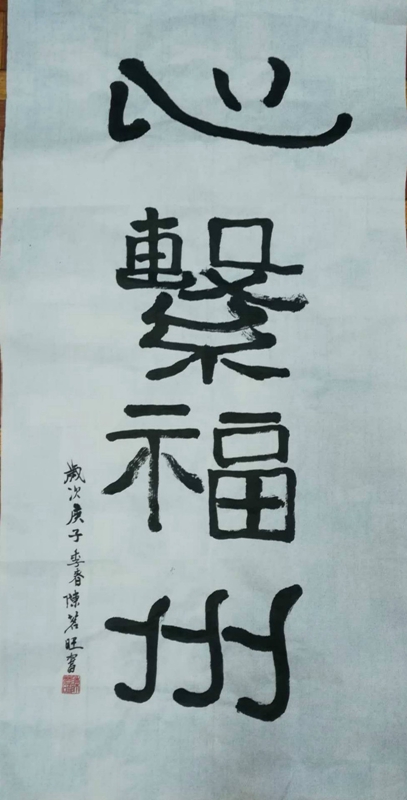 心繫福州
歲次庚子季春陳茗旺書